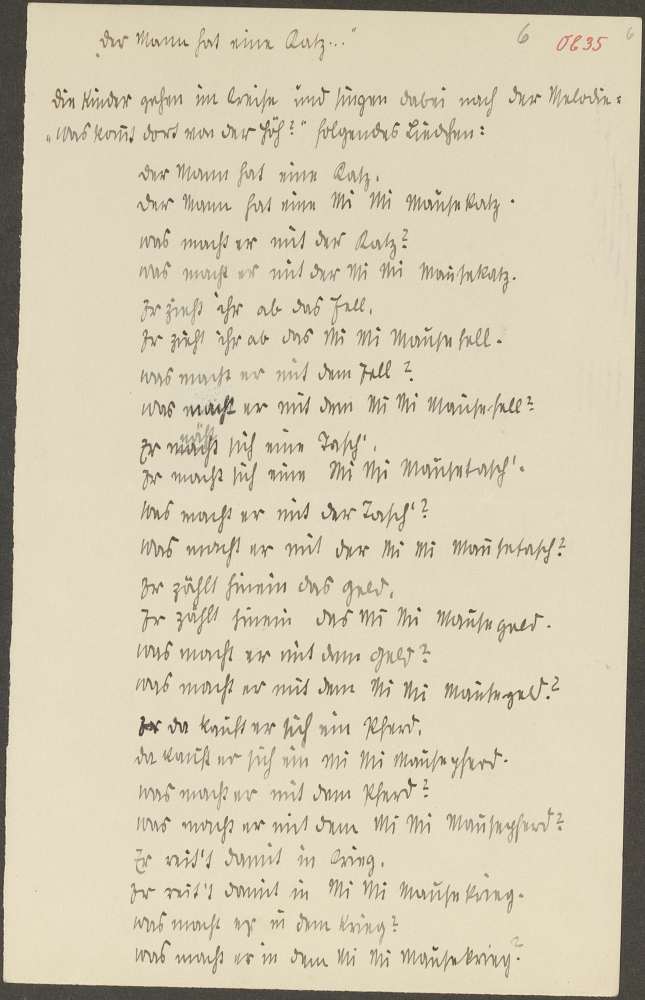 „Der Mann hat eine Katz..." 6 OE35 6
Die Kinder gehen im Kreise und singen dabei nach der Melodie:
„Was kommt dort von der Höh?" folgendes Liedchen:
Der Mann hat eine Katz,
Der Mann hat eine Mi Mi Mausekatz.
Was macht er mit der Katz?
Was macht er mit der Mi Mi Mausekatz.
Er zieht ihr ab das Fell,
Er zieht ihr ab das Mi Mi Mausefell.
Was macht er mit dem Fell?
Was macht er mit dem Mi Mi Mausefell?
Er macht sich eine Tasch',
Er macht sich eine Mi Mi Mausetasch'.
Was macht er mit der Tasch'?
Was macht er mit der Mi Mi Mausetasch?
Er zählt hinein das Geld,
Er zählt hinein das Mi Mi Mausegeld.
Was macht er mit dem Geld?
Was macht er mit dem Mi Mi Mausegeld?
Da kauft er sich ein Pferd,
Da kauft er sich ein Mi Mi Mausepferd.
Was macht er mit dem Pferd?
Was macht er mit dem Mi Mi Mausepferd?
Er reit't damit in Krieg,
Er reit't damit in Mi Mi Mausekrieg.
Was macht er in dem Krieg?
Was macht er in dem Mi Mi Mausekrieg?